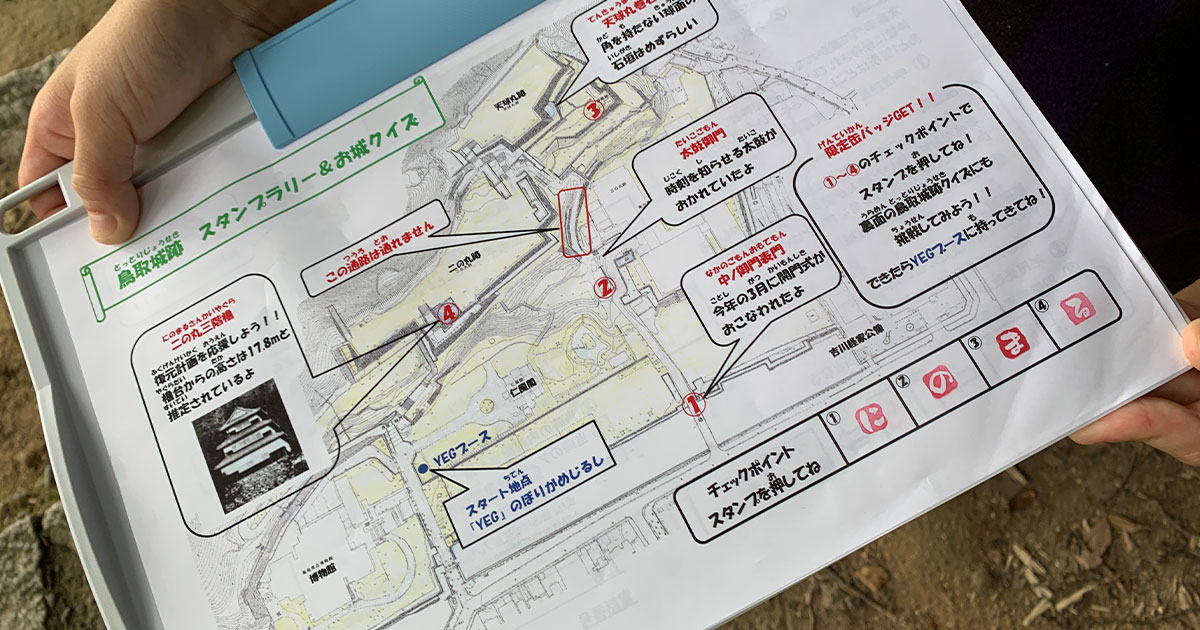 鳥取城跡 スタンプラリー&お城クイズ
とっとりじょうせき
天球丸
角を持たない球面の
かど も
石垣はめずらしい
いしがき
天球丸跡
③
たいこごもん
太鼓御門
じこく し たいこ
時刻を知らせる太鼓が
おかれていたよ
げんていかん
限定缶バッジGET!!
①~④のチェックポイントで
スタンプを押してね!
うらめん とっとりじょうせき
裏面の鳥取城跡クイズにも
ちょうせん
挑戦してみよう!!
できたらYEGブースに持ってきてね!
つうろ とお
この通路は通れません
二の丸跡
②
④
なかのごもんおもてもん
中ノ御門表門
ことし がつ かいもんしき
今年の3月に開門式が
おこなわれたよ
①
にのまるさんかいやぐら
二の丸三階櫓
ふくげんけいかく おうえん
復元計画を応援しよう!!
やぐらだい たか
櫓台からの高さは17.8mと
すいてい
推定されているよ
仁風閣
吉川経家公像
YEGブース
ちてん
スタート地点
「YEG」のぼりがめじるし
博物館
チェックポイント
スタンプを押してね
① じ
② の
③ ま
④ る